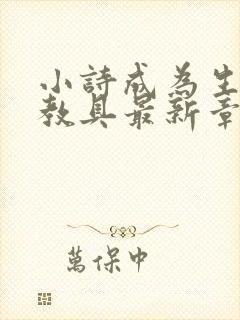 小詩成為生
教具最新章
萬保中